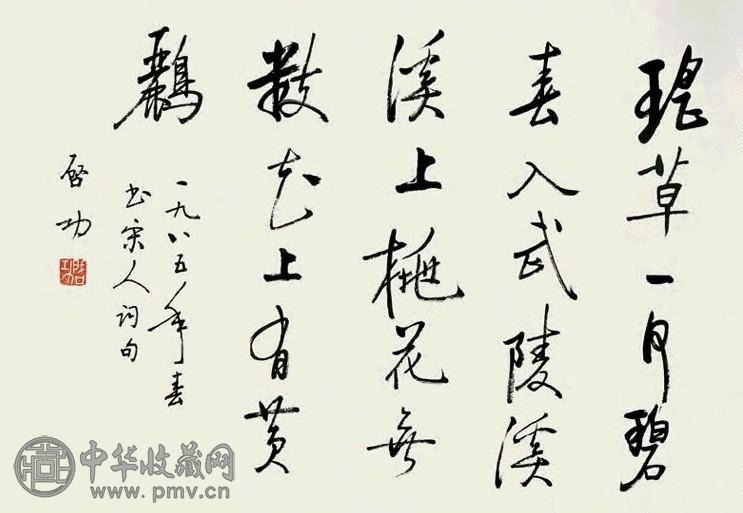 瑶草一何碧
春入武陵溪
溪上桃花無
數花上有黄
鸝
一九八五年春
书宋人词句
啓功
啓功
中华收藏网
www.pmv.cn